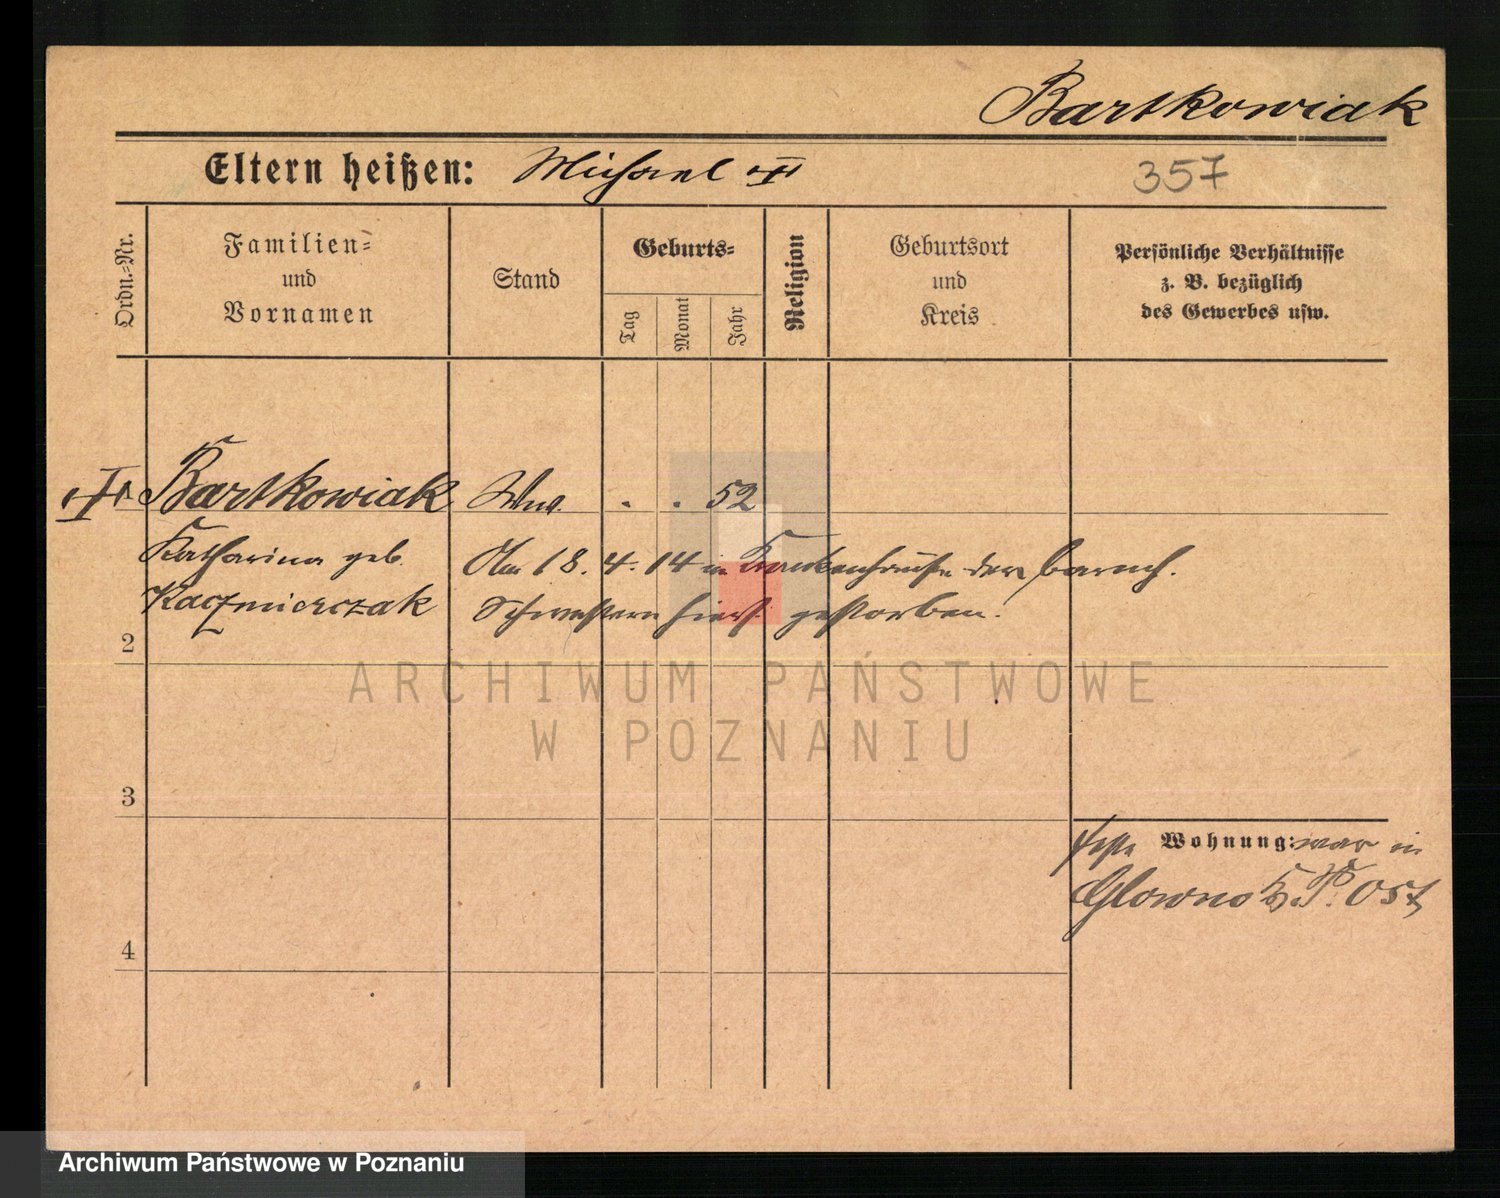 Bartkowiak
Eltern heißen: Michael
357
Ordn.-Nr.
Familien-
und
Vornamen
Stand
Geburts-
Tag
Monat
Jahr
Religion
Geburtsort
und
Kreis
Persönliche Verhältnisse
z. B. bezüglich
des Gewerbes usw.
Bartkowiak Wwe. . . 52
Katharina geb. Am 18. 4. 14 im Krankenhause der barmh.
Kaczmierczak Schwestern hiers. gestorben.
2
ARCHIWUM PAŃSTWOWE
W POZNANIU
3
feste Wohnung: war in
Glowno Kr. P. Ost
4
Archiwum Państwowe w Poznaniu